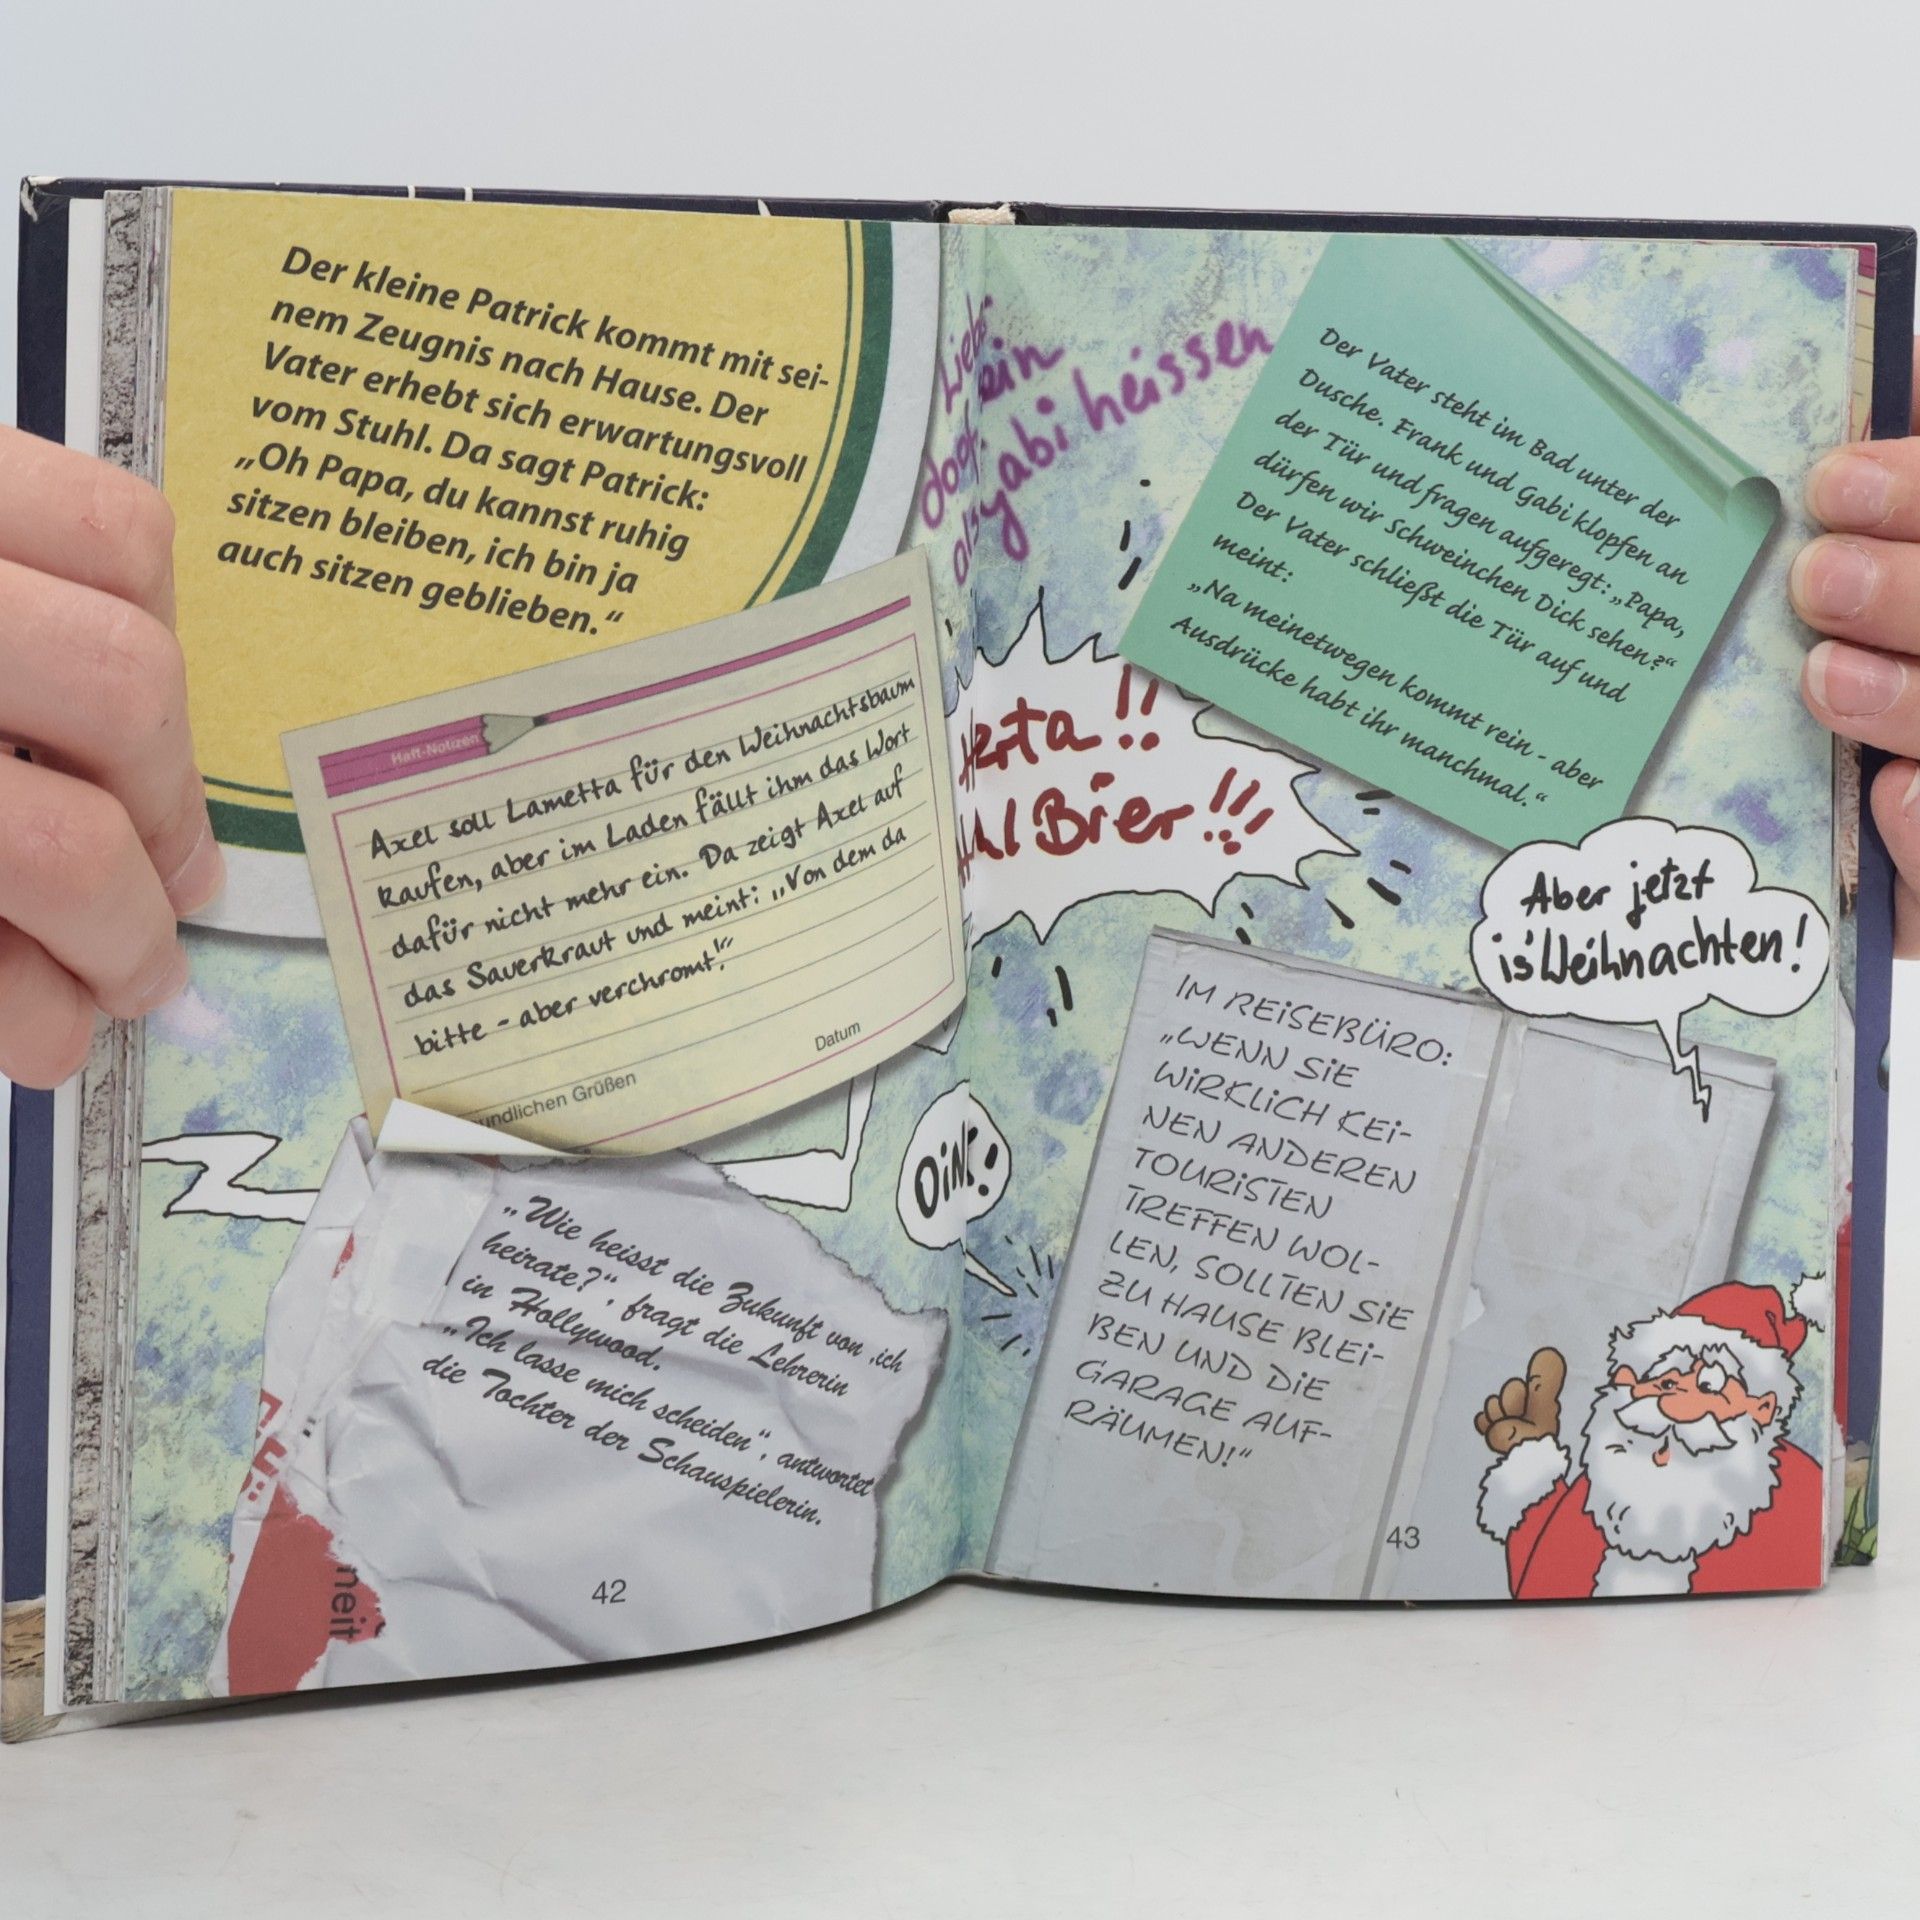 Der kleine Patrick kommt mit sei-
nem Zeugnis nach Hause. Der
Vater erhebt sich erwartungsvoll
vom Stuhl. Da sagt Patrick:
„Oh Papa, du kannst ruhig
sitzen bleiben, ich bin ja
auch sitzen geblieben.“
Haft-Notizen
Axel soll Lametta für den Weihnachtsbaum
kaufen, aber im Laden fällt ihm das Wort
dafür nicht mehr ein. Da zeigt Axel auf
das Sauerkraut und meint: „Von dem da
bitte - aber verchromt!“
Datum
Grüßen
„Wie heisst die Zukunft von ‚ich
heirate?“, fragt die Lehrerin
in Hollywood.
„Ich lasse mich scheiden“, antwortet
die Tochter der Schauspielerin.
heit
42
ein
doof
als gabi heissen
Herta!!
Bier!!!
Der Vater steht im Bad unter der
Dusche. Frank und Gabi klopfen an
der Tür und fragen aufgeregt: „Papa,
dürfen wir Schweinchen Dick sehen?“
Der Vater schließt die Tür auf und
meint:
„Na meinetwegen kommt rein - aber
Ausdrücke habt ihr manchmal.“
Aber jetzt
is' Weihnachten!
IM REISEBÜRO:
„WENN SIE
WIRKLICH KEI-
NEN ANDEREN
TOURISTEN
TREFFEN WOL-
LEN, SOLLTEN SIE
ZU HAUSE BLEI-
BEN UND DIE
GARAGE AUF-
RÄUMEN!“
43